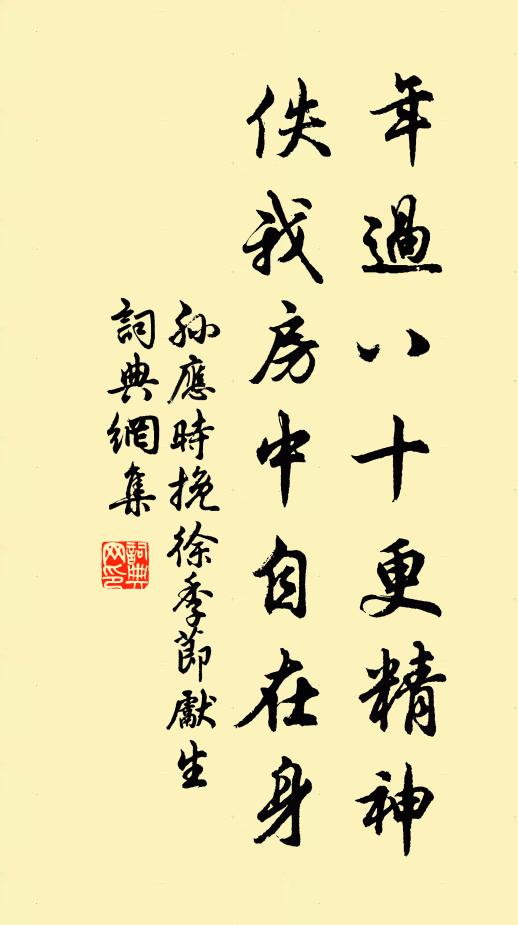 年過八十更精神
佚我房中自在身
孫應時挽徐季節獻生
詞典網集
詞典網印